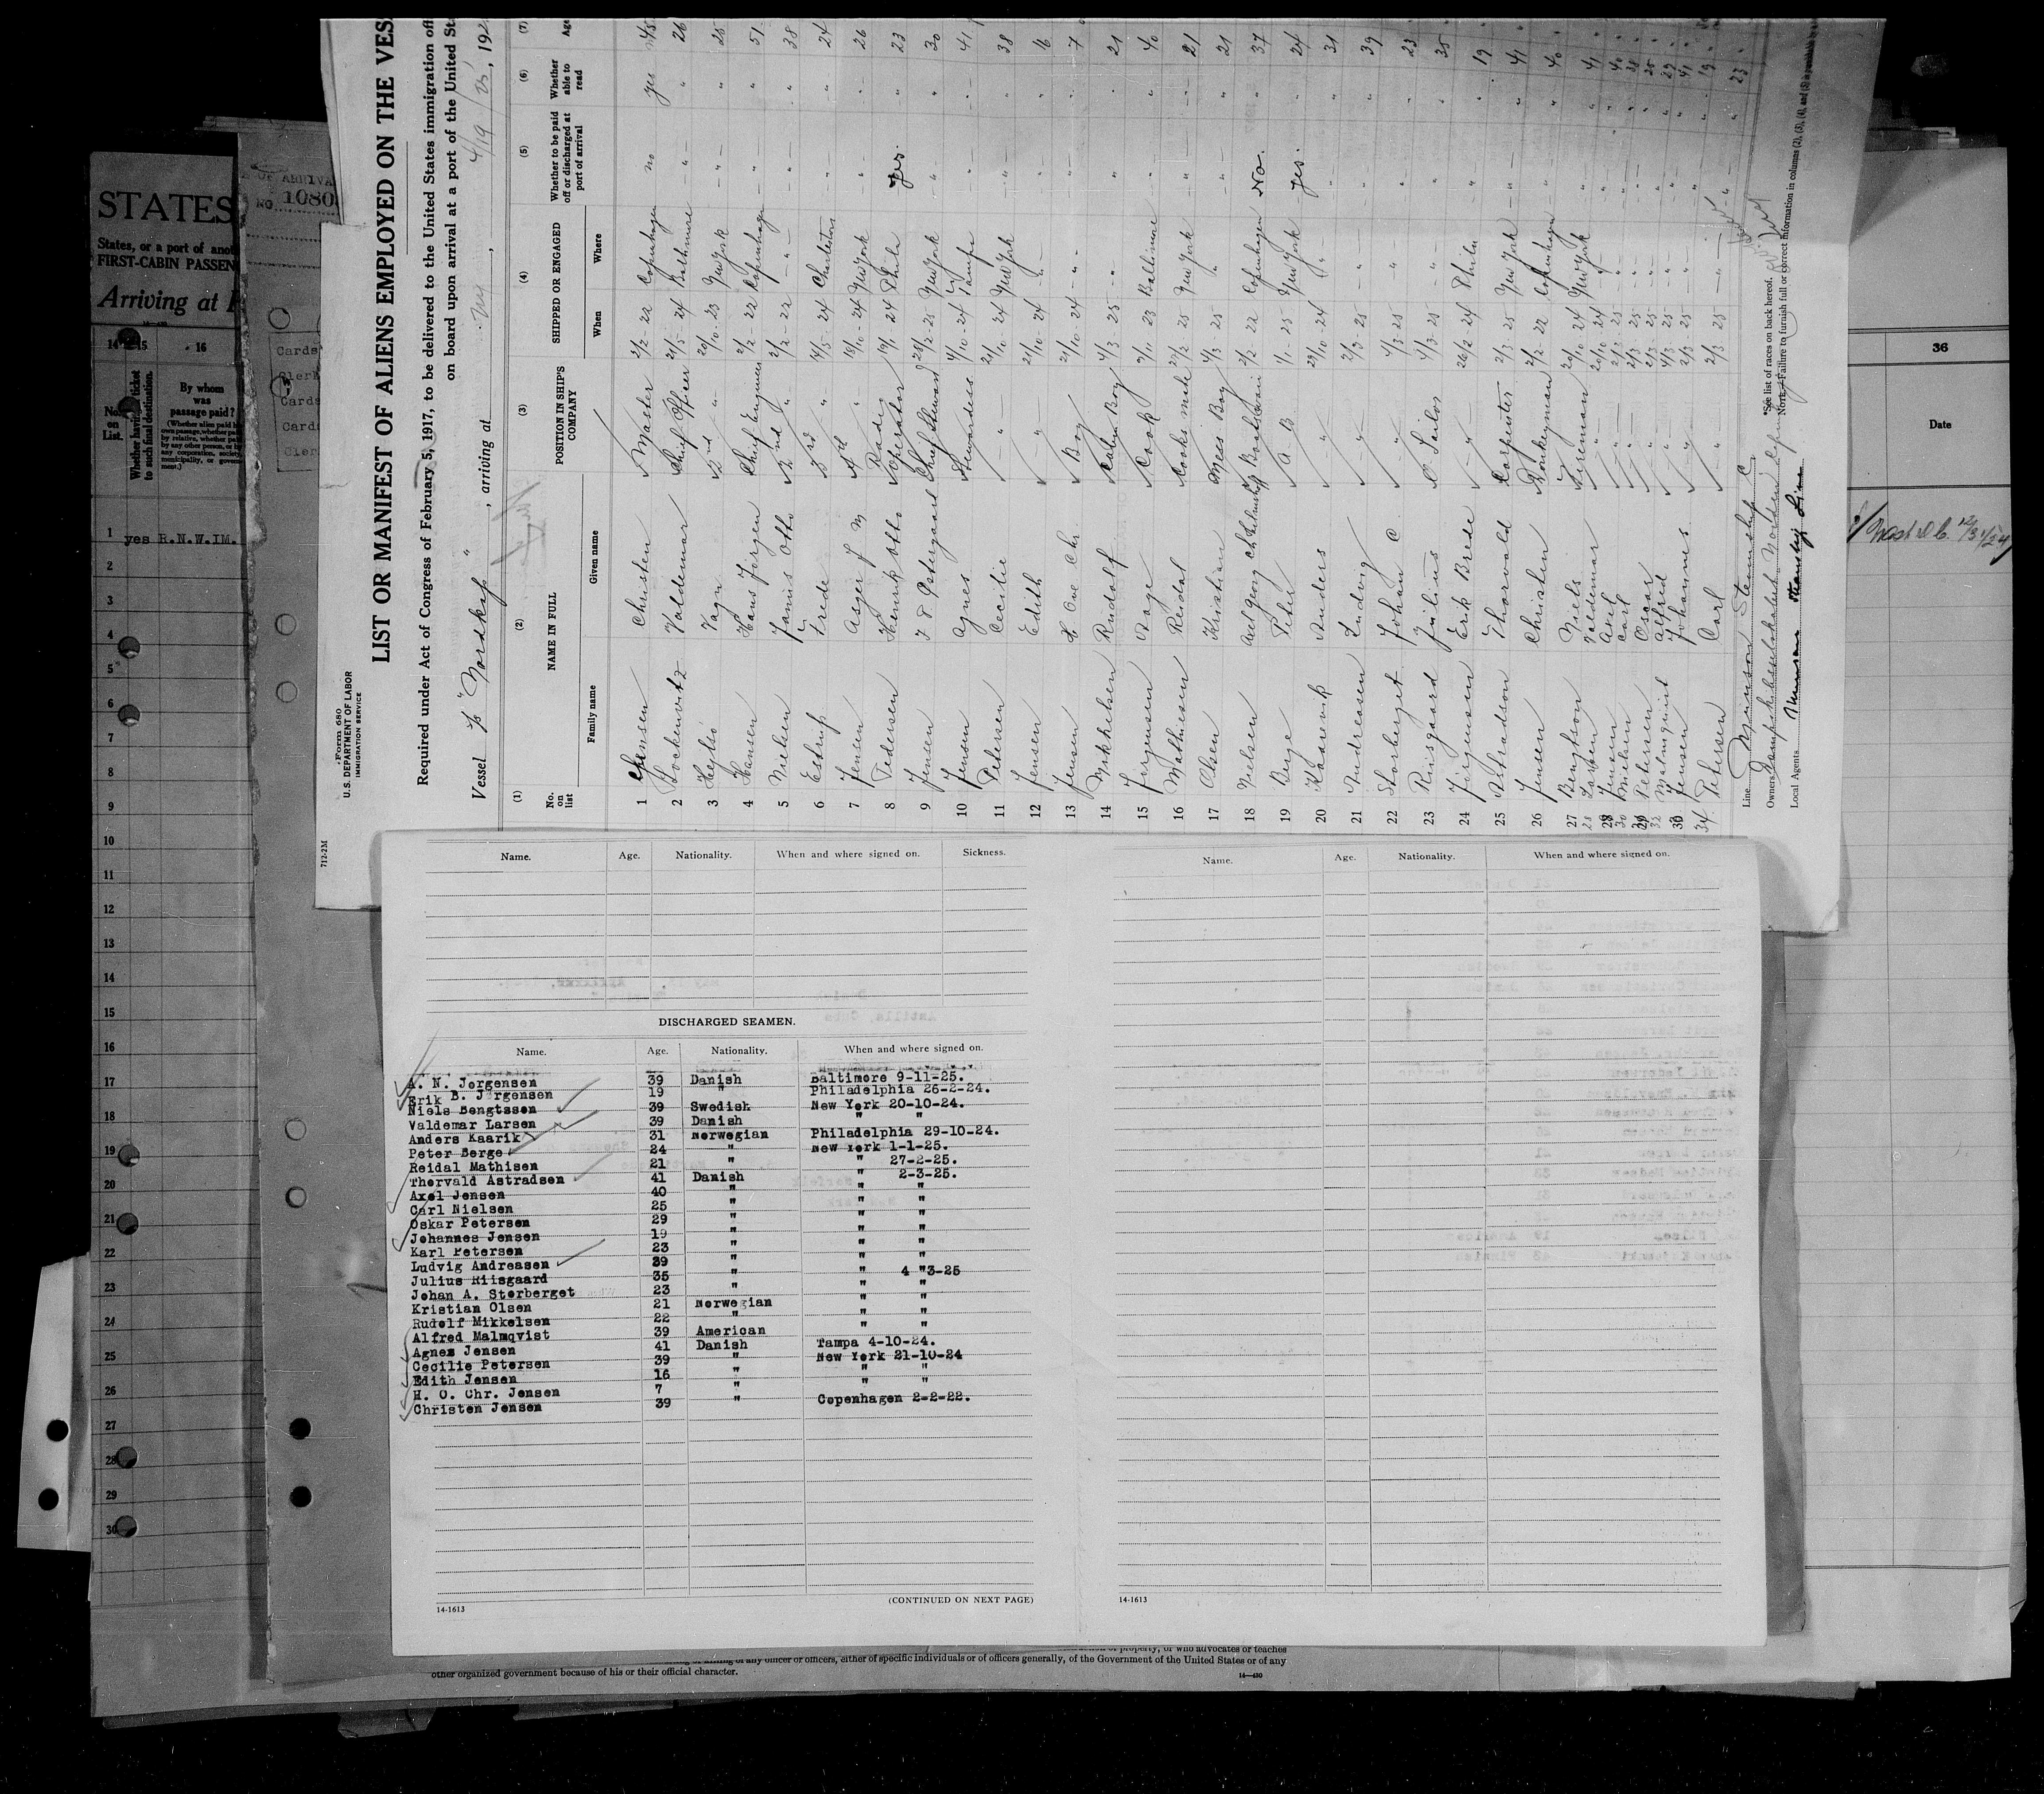 STATES
States, or a port of
FIRST-CABIN PASSEN
Arriving at
14 15
16
No. on List.
Whether having a ticket to such final destination.
By whom was passage paid?
1 yes R.N.W.IM.
2
3
4
5
6
7
8
9
10
11
12
13
14
15
16
17
18
19
20
21
22
23
24
25
26
27
28
29
30
1080
NO.
Cards
Clerk
Cards
Cards
Cler
36
Date
712-2M
Form 680
U.S. DEPARTMENT OF LABOR
IMMIGRATION SERVICE
LIST OR MANIFEST OF ALIENS EMPLOYED ON THE VES
Required under Act of Congress of February 5, 1917, to be delivered to the United States immigration off
on board upon arrival at a port of the United St
Vessel "Nordkap", arriving at , 192
(1) (2) (3) (4) (5) (6) (7)
No. on list
NAME IN FULL
POSITION IN SHIP'S COMPANY
SHIPPED OR ENGAGED
Whether to be paid off or discharged at port of arrival
Whether able to read
Ag
Family name
Given name
When
Where
1 Jensen Christen Master 2/2 - 22 Copenhagen no yes 45
2 Valdemar Chief Officer 21/5 - 24 Baltimore " " 26
3 Vagn 2nd " 20/10 - 23 New York " " 25
4 Hansen Hans Jörgen Chief Engineer 2/2 - 22 Copenhagen " " 51
5 Nielsen Otto 2nd " 2/2 - 22 " " " 38
6 Estrup Frede 3rd " 14/5 - 24 Charleston " " 24
7 Jensen Asger M 4th " 18/10 - 24 New York " " 26
8 Pedersen Henrik Otto Radio Operator 19/1 24 Phila yes. " 23
9 Jensen Chief Steward 28/2 - 25 New York " " 30
10 Jensen Agnes Stewardess 4/10 - 24 Tampa " " 41
11 Petersen Cecilie " 21/10 24 New York " " 38
12 Jensen Edith " 21/10 - 24 " " " 16
13 Jensen H. Ove Chr Boy 21/10 - 24 " " " 7
14 Mikkelsen Rudolf Cabin Boy 4/3 - 25 " " " 21
15 Jörgensen Aage Cook 9/11 23 Baltimore " " 40
16 Mathiesen Reidal Cooks mate 27/2 25 New York " " 21
17 Olsen Kristian Mess Boy 4/3 25 " " " 21
18 Nielsen Axel Georg Boatswain 2/2 - 22 Copenhagen No. " 37
19 Berge Peter A B 1/1 - 25 New York yes. " 24
20 Kaarvik Anders " 29/10 - 24 " " " 31
21 Andreasen Ludvig " 2/3 - 25 " " " 39
22 Storberget Johan C. " 4/3 - 25 " " " 23
23 Riisgaard Julius O Sailor 4/3 - 25 " " " 35
24 Jörgensen Erik Brede " 26/2 - 24 Phila " " 19
25 Astradson Thorvald Carpenter 2/3 - 25 New York " " 41
26 Jensen Christen Donkeyman 2/2 - 22 Copenhagen " " 40
27 Bengtson Niels Fireman 20/10 - 24 New York " " 41
28 Larsen Valdemar " 20/10 - 24 " " " 40
Jensen Axel " 2/3 - 25
30 Nielsen Carl " 2/3 - 25
Petersen Oscar " 2/3 - 25
32 Malmquist Alfred " 4/3 - 25
Jensen Johannes " 2/3 - 25 19
34 Petersen Carl " 2/3 25 23
Line Munson Steamship C
Owners Dampskibsselskabet Norden
Local Agents Munson Steamship Line
*See list of races on back hereof.
NOTE.—Failure to furnish full or correct information in columns (2), (3), (4), and (5) is
Name. Age. Nationality. When and where signed on. Sickness.
DISCHARGED SEAMEN.
Name. Age. Nationality. When and where signed on.
A. N. Jørgensen 39 Danish Baltimore 9-11-25.
Erik B. Jørgensen 19 " Philadelphia 26-2-24.
Niels Bengtssen 39 Swedish New York 20-10-24.
Valdemar Larsen 39 Danish " "
Anders Kaarik 31 Norwegian Philadelphia 29-10-24.
Peter Berge 24 " New York 1-1-25.
Reidal Mathisen 21 " " 27-2-25.
Thorvald Astradsen 41 Danish " 2-3-25.
Axel Jensen 40 " " "
Carl Nielsen 25 " " "
Oskar Petersen 29 " " "
Johannes Jensen 19 " " "
Karl Petersen 23 " " "
Ludvig Andreasen 39 " " "
Julius Riisgaard 35 " " 4 "3-25
Johan A. Storberget 23 " " "
Kristian Olsen 21 Norwegian " "
Rudolf Mikkelsen 22 " " "
Alfred Malmqvist 39 American " "
Agnes Jensen 41 Danish Tampa 4-10-24.
Cecilie Petersen 39 " New York 21-10-24
Edith Jensen 16 " " "
H. O. Chr. Jensen 7 " " "
Christen Jensen 39 " Copenhagen 2-2-22.
14-1613
(CONTINUED ON NEXT PAGE)
Name. Age. Nationality. When and where signed on.
14-1613
of property, or who advocates or teaches
of any officer or officers, either of specific individuals or of officers generally, of the Government of the United States or of any
other organized government because of his or their official character.